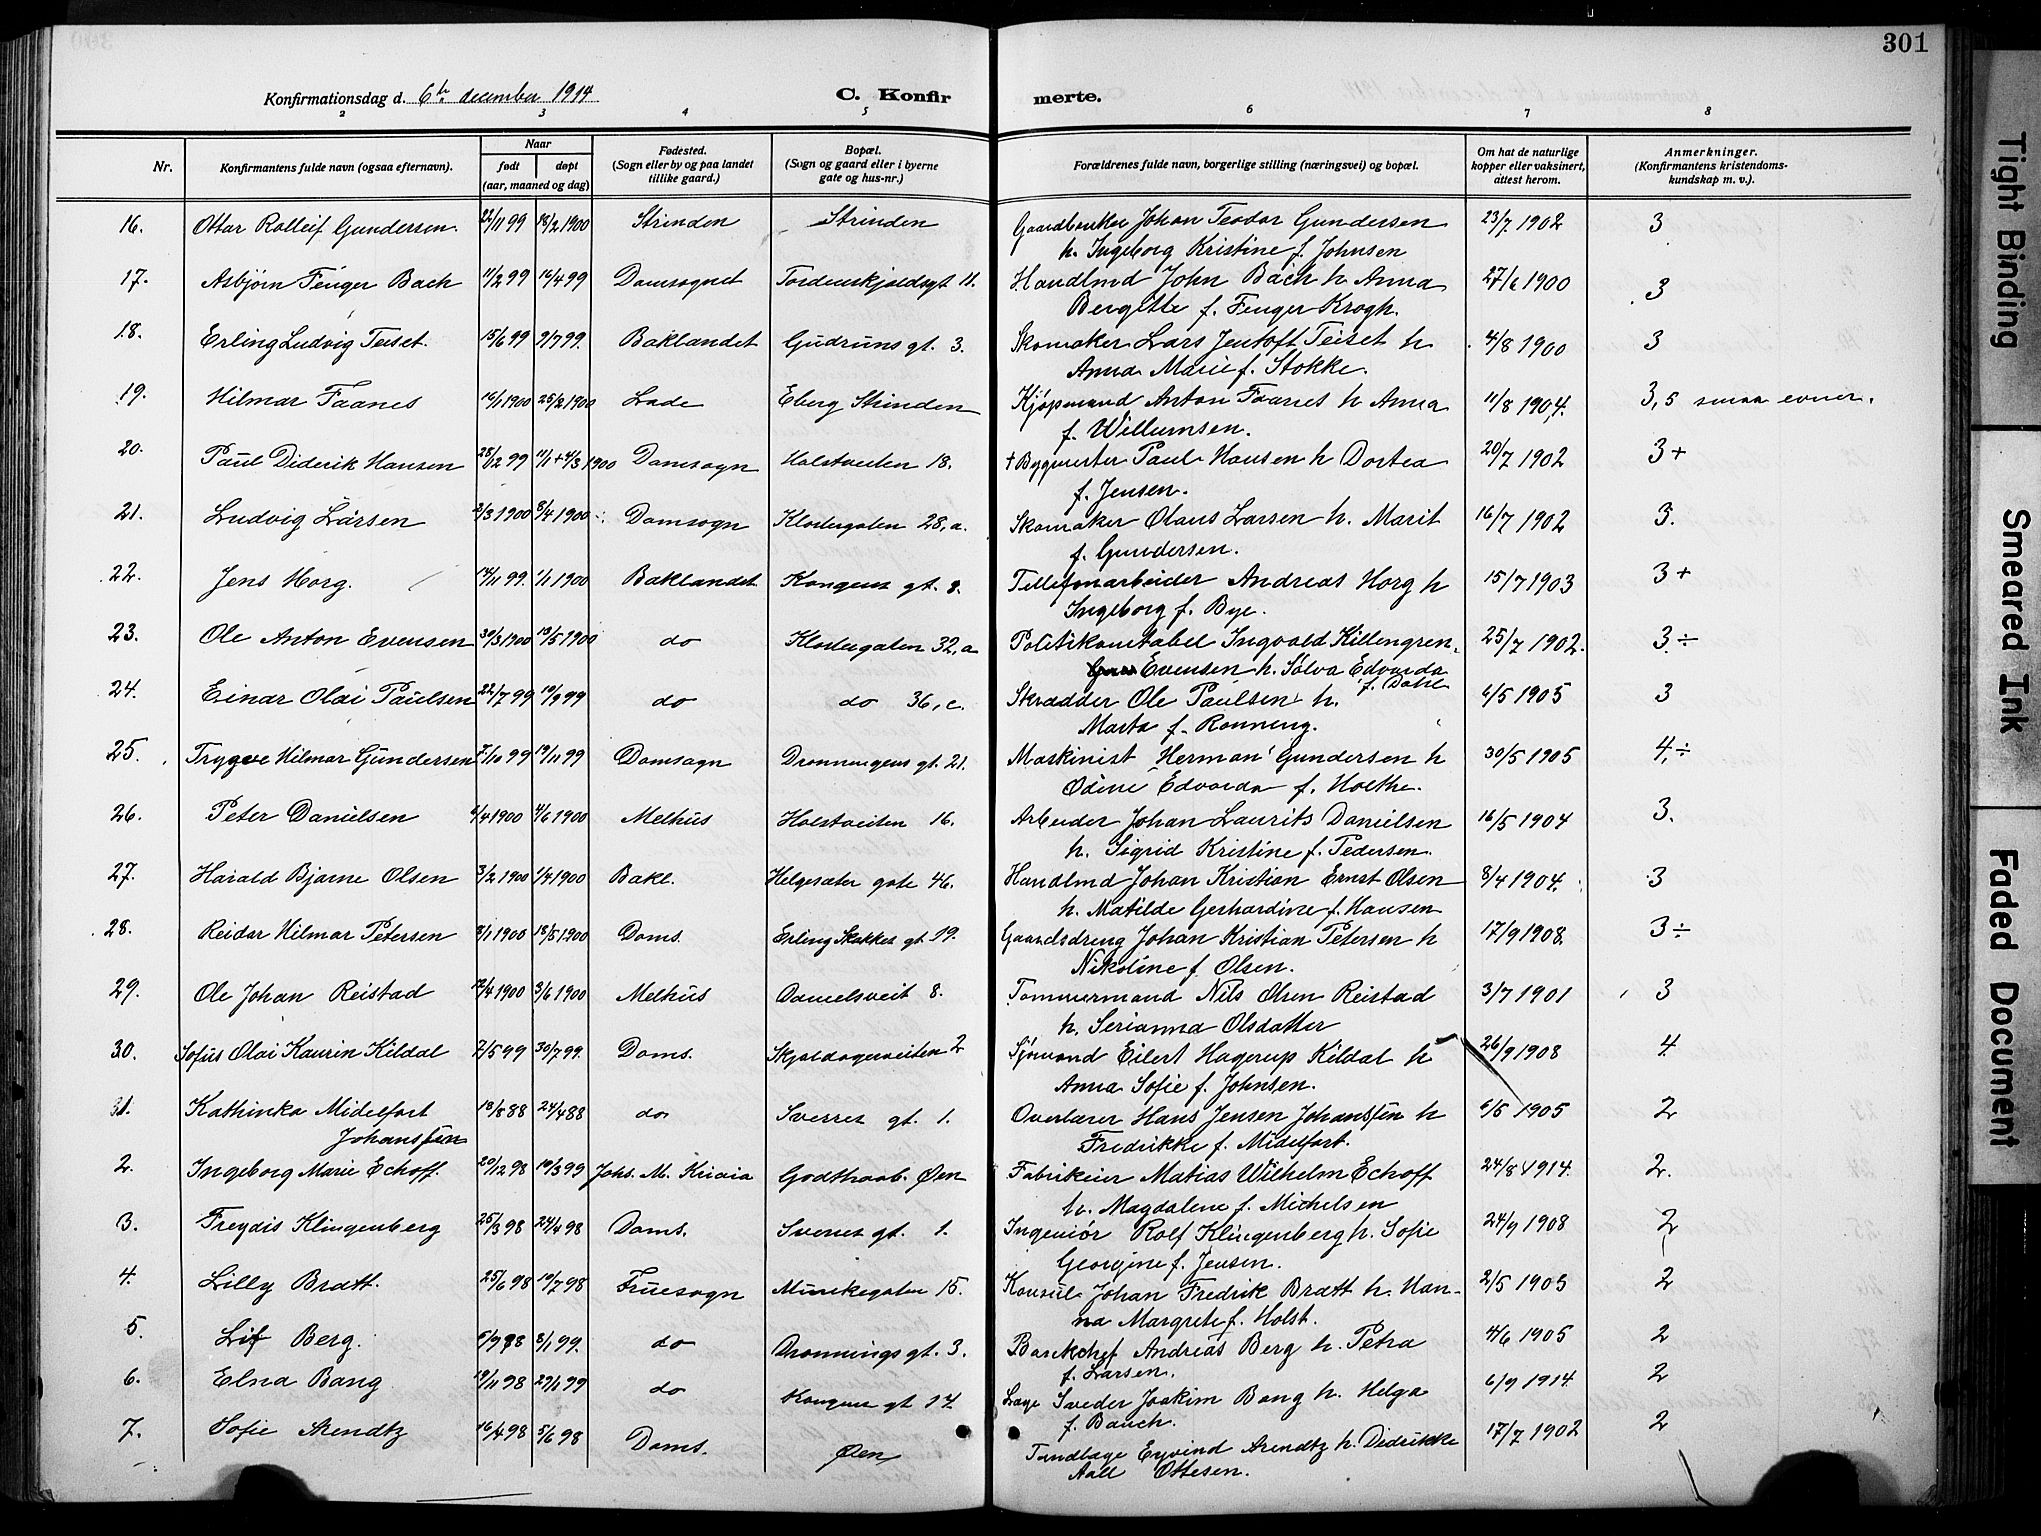 301
Konfirmationsdag d. 6te december 1914
C. Konfir merte.
2 3 4 5 6 7 8
Nr. Konfirmantens fulde navn (ogsaa efternavn). Naar født døpt (aar, maaned og dag) Fødested. (Sogn eller by og paa landet tillike gaard.) Bopæl. (Sogn og gaard eller i byerne gate og hus-nr.) Forældrenes fulde navn, borgerlige stilling (næringsvei) og bopæl. Om hat de naturlige kopper eller vaksinert, attest herom. Anmerkninger. (Konfirmantens kristendoms-kundskap m. v.).
16. Ottar Rolleif Gundersen. 22/11 99 18/2 1900 Strinden Strinden Gaardbruker Johan Teodor Gundersen 23/7 1902 3
h. Ingeborg Kristine f. Johnsen
17. Asbjørn Fenger Bach 11/2 99 16/4 99 Domsognet Tordenskjoldsgt 11. Handlmd John Bach h Anna 27/6 1900 3
Bergitte f. Fenger Krogh.
18. Erling Ludvig Teiset. 15/6 99 9/7 99. Baklandet Gudruns gt. 3. Skomaker Lars Jentoft Teiset h 4/8 1900 3
Anna Marie f. Stokke.
19. Hilmar Faanes 16/1 1900 25/2 1900 Lade Eberg Strinden Kjøpmand Anton Faanes h Anna 11/8 1904. 3,5 smaa evner.
f. Willumsen.
20. Paul Diderik Hansen 25/12 99 11/1 + 4/3 1900 Domsogn Holstveiten 18. + Bygmester Paul Hansen h Dortea 20/7 1902 3+
f. Jensen.
21. Ludvig Larsen 2/3 1900 8/4 1900 Domsogn Klostergaten 28,a. Skomaker Olaus Larsen h. Marit 16/7 1902 3.
f. Gundersen.
22. Jens Horg. 14/11 99. 1/1 1900 Baklandet. Kongens gt. 8. Tellefonarbeider Andreas Horg h 15/7 1903 3+
Ingeborg f. Bye.
23. Ole Anton Evensen 30/3 1900 13/5 1900 do Klostergaten 32,a Politikonstabel Ingvald Killengren 25/7 1902. 3÷
Evensen h. Solva Edvarda
f. Dahl
24. Einar Olai Paulsen 22/7 99 10/9 99 do do 36,c. Skrædder Ole Paulsen h. 6/5 1905 3
Marta f. Rønning.
25. Trygve Hilmar Gundersen 7/10 99 19/11 99 Domsogn Dronningens gt. 21. Maskinist Herman Gundersen h 30/5 1905 4,÷
Ødine Edvarda f. Holthe.
26. Peter Danielsen 6/4 1900 4/6 1900 Melhus Holstveiten 16. Arbeider Johan Laurits Danielsen 16/5 1904 3.
h. Sigrid Kristine f. Pedersen.
27. Harald Bjarne Olsen 3/2 1900 1/4 1900 Bakl. Helgesæter gate 46. Handlmd Johan Kristian Ernst Olsen 8/4 1904. 3
h. Matilde Gerhardine f. Hansen
28. Reidar Hilmar Petersen 8/1 1900 18/3 1900 Doms. Erling Skakkes gt. 19. Gaardsdreng Johan Kristian Petersen h 17/9 1908. 3÷
Nikoline f. Olsen.
29. Ole Johan Reistad 12/4 1900 3/6 1900 Melhus Danielsveit 8. Tømmermand Nils Olsen Reistad 3/7 1901 3
h. Serianna Olsdatter
30. Sofus Olai Kaurin Kildal 2/5 99 30/7 99. Doms. Skjoldagerveiten 2 Sjømand Eilert Hagerup Kildal h 26/9 1908 4.
Anna Sofie f. Johnsen.
31. Kathinka Midelfart 18/8 88 24/4 88 do Sverres gt. 1. Overlærer Hans Jensen Johanssen h 6/5 1905 2
Johanssen Fredrikke f. Midelfart.
2. Ingeborg Marie Echoff. 20/12 98 19/3 99 Johs. M. Godthaab. Øen Fabrikeier Matias Wilhelm Echoff 24/8 1914. 2.
h. Magdalene f. Michelsen
3. Freydis Klingenberg 25/3 98 24/4 98 Doms. Sverres gt. 1. Ingeniør Rolf Klingenberg h. Sofie 24/9 1908 2
Georgine f. Jensen.
4. Lilly Bratt. 25/6 98 10/7 98 Fruesogn Munkegaten 15. Konsul Johan Fredrik Bratt h. Han- 2/5 1905 2
na Margrete f. Holst.
5. Lif Berg. 5/9 98 8/1 99. do Dronningsgt. 3. Bankchef Andreas Berg h. Petra 4/6 1905 2
f. Larsen.
6. Elna Bang 19/11 98 29/1 99 do Kongens gt 14. Læge Sveder Joakim Bang h. Helga 6/9 1914. 2
f. Bauch.
7. Sofie Arendtz 16/4 98 5/6 98 Doms. Øen Tandlæge Eyvind Arendtz h. Didrikke 17/7 1902 2
Aall Ottesen.
Tight Binding
Smeared Ink
Faded Document